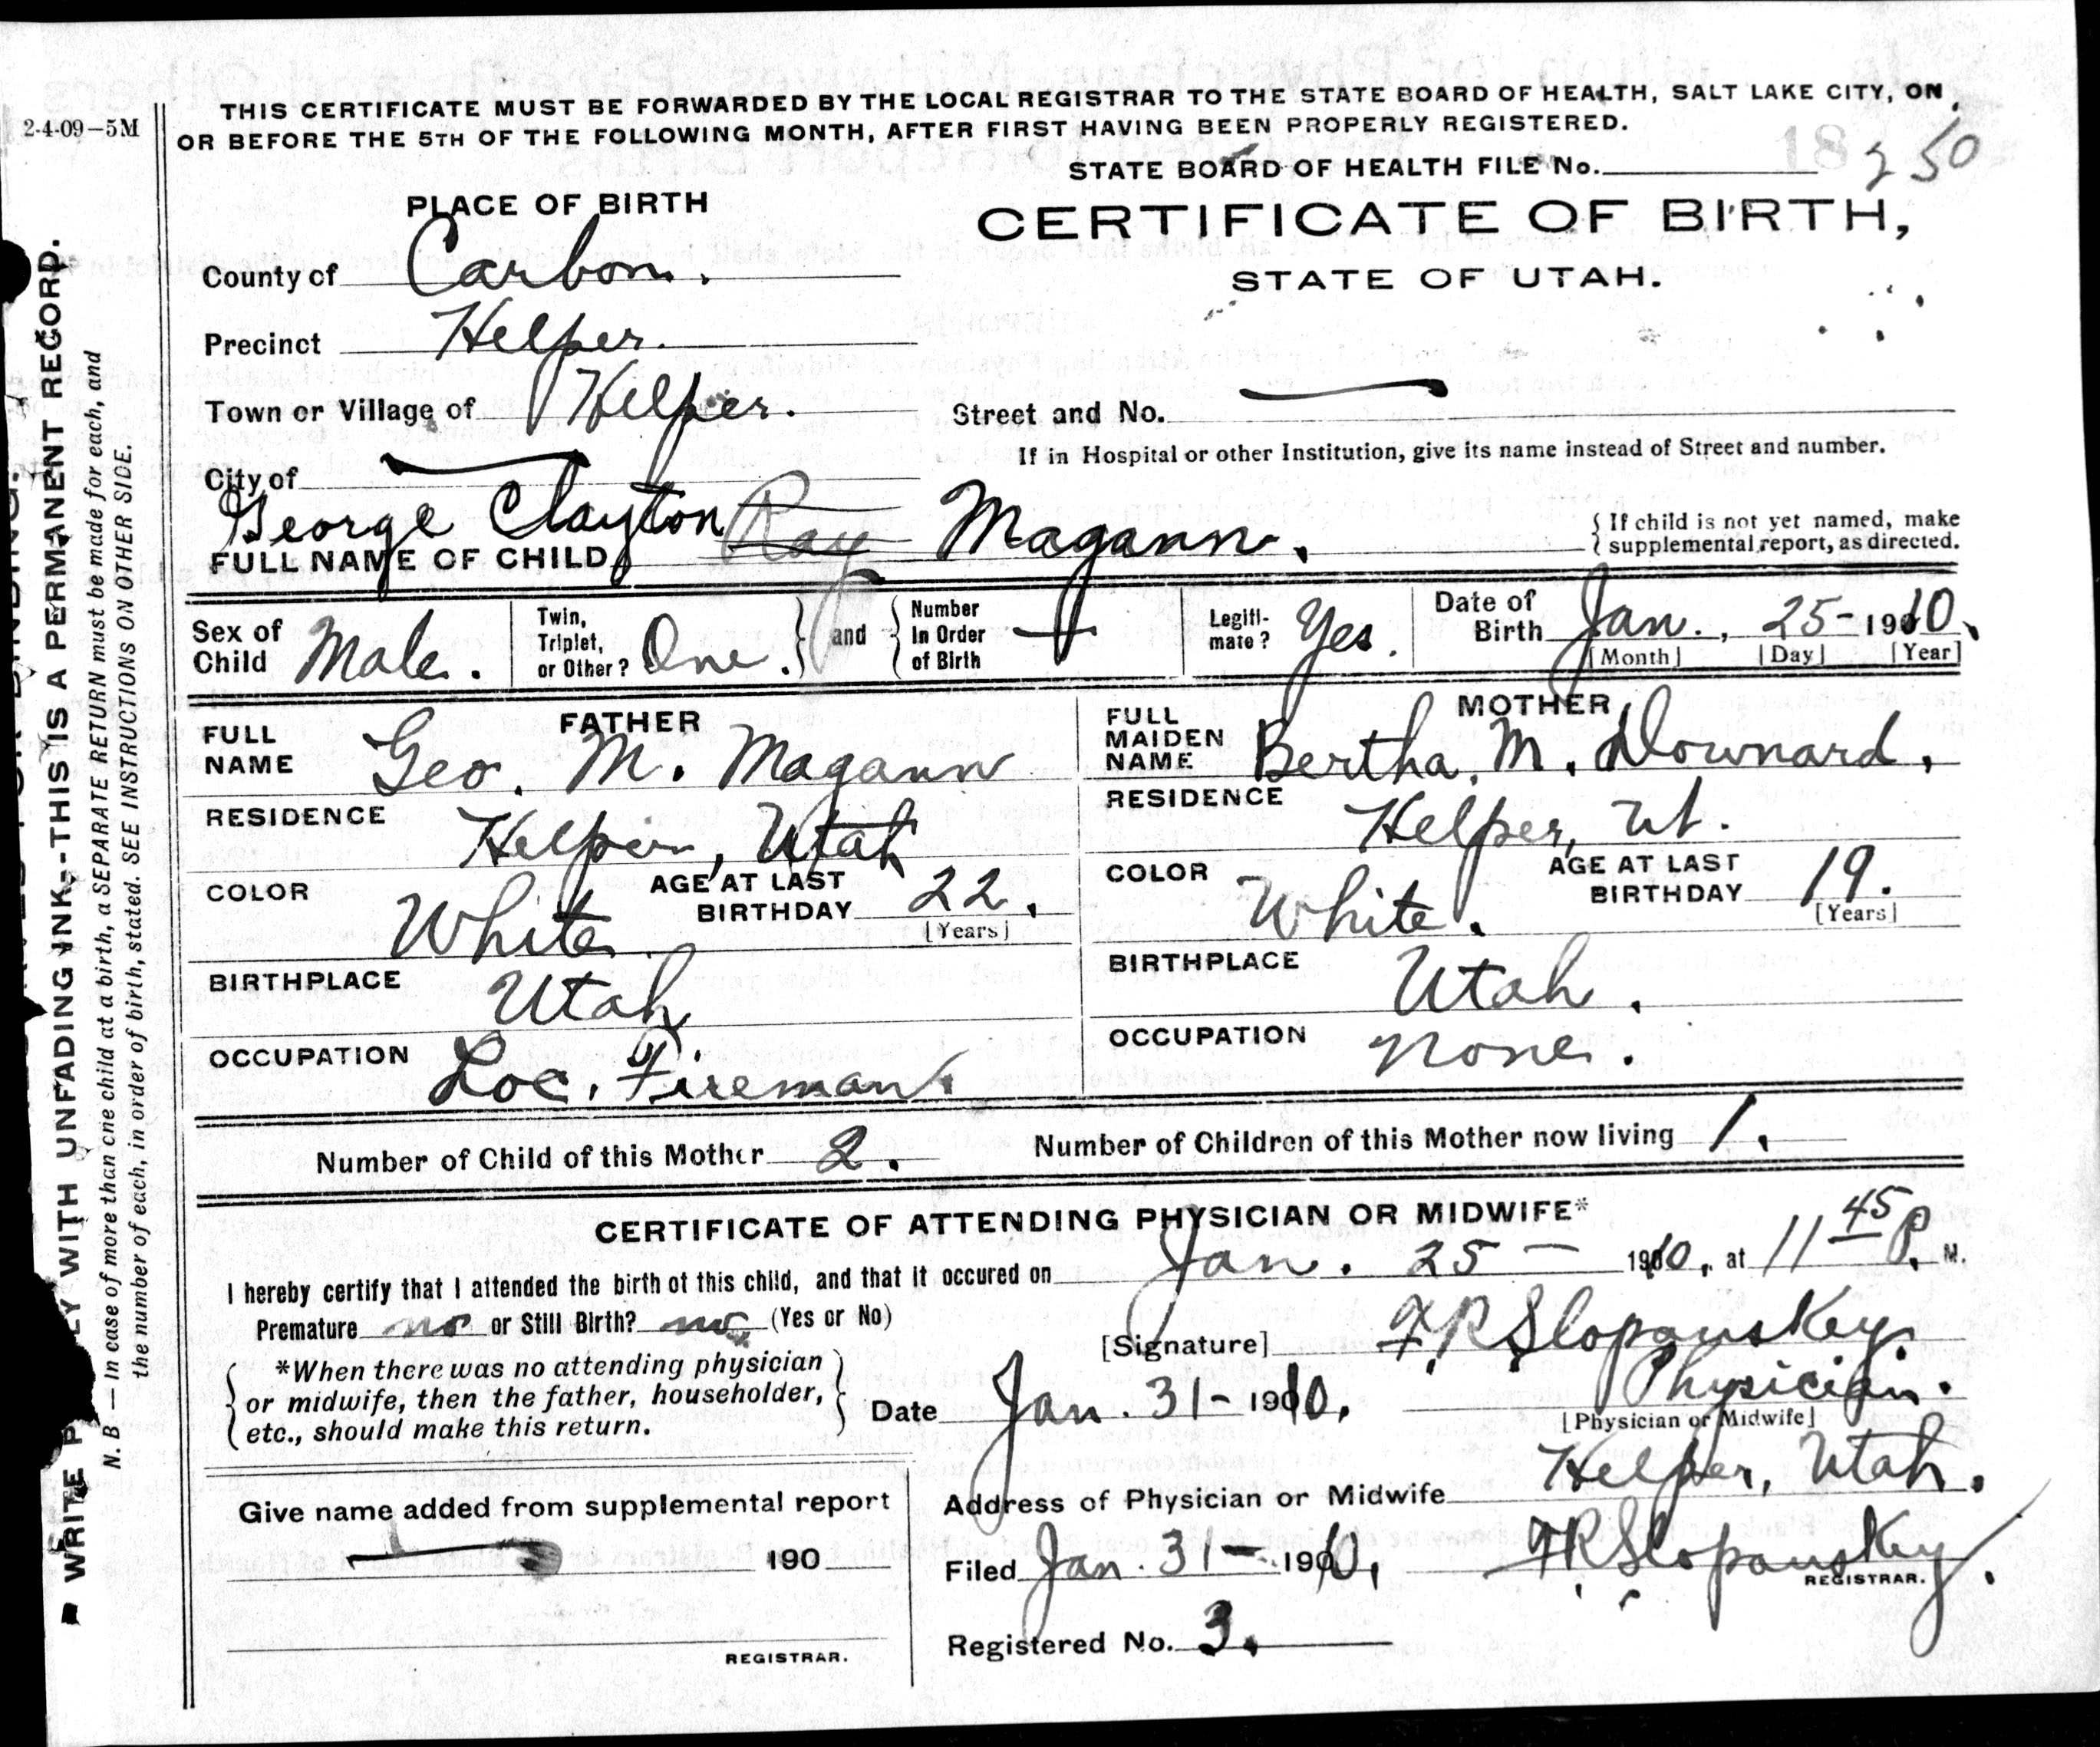 2-4-09–5M
THIS CERTIFICATE MUST BE FORWARDED BY THE LOCAL REGISTRAR TO THE STATE BOARD OF HEALTH, SALT LAKE CITY, ON
OR BEFORE THE 5TH OF THE FOLLOWING MONTH, AFTER FIRST HAVING BEEN PROPERLY REGISTERED.
STATE BOARD OF HEALTH FILE No. 250
PLACE OF BIRTH
CERTIFICATE OF BIRTH,
STATE OF UTAH.
County of Carbon.
Precinct Helper.
Town or Village of Helper.
Street and No. —
If in Hospital or other Institution, give its name instead of Street and number.
City of —
FULL NAME OF CHILD George Clayton Ray Magann.
{ If child is not yet named, make
supplemental report, as directed.
Sex of Child Male.
Twin, Triplet, or Other? One.
and
Number In Order of Birth —
Legitimate? Yes.
Date of Birth Jan., 25- 1910.
[Month] [Day] [Year]
FATHER
FULL NAME Geo. M. Magann
RESIDENCE Helper, Utah
COLOR White
AGE AT LAST BIRTHDAY 22.
[Years]
BIRTHPLACE Utah
OCCUPATION Loc. Fireman.
MOTHER
FULL MAIDEN NAME Bertha. M. Downard.
RESIDENCE Helper, Ut.
COLOR White.
AGE AT LAST BIRTHDAY 19.
[Years]
BIRTHPLACE Utah.
OCCUPATION None.
Number of Child of this Mother 2. Number of Children of this Mother now living 1.
CERTIFICATE OF ATTENDING PHYSICIAN OR MIDWIFE*
I hereby certify that I attended the birth of this child, and that it occured on Jan. 25 — 1910, at 11 45 P. M.
Premature no or Still Birth? no (Yes or No)
[Signature] F.R. Slopanskey.
*When there was no attending physician
or midwife, then the father, householder,
etc., should make this return.
Date Jan. 31- 1910.
Physician.
[Physician or Midwife]
Address of Physician or Midwife Helper, Utah.
Give name added from supplemental report
— 190
REGISTRAR.
Filed Jan. 31- 1910, F.R. Slopanskey
REGISTRAR.
Registered No. 3.
WITH UNFADING INK--THIS IS A PERMANENT RECORD.
WRITE
N. B — In case of more than one child at a birth, a SEPARATE RETURN must be made for each, and
the number of each, in order of birth, stated. SEE INSTRUCTIONS ON OTHER SIDE.